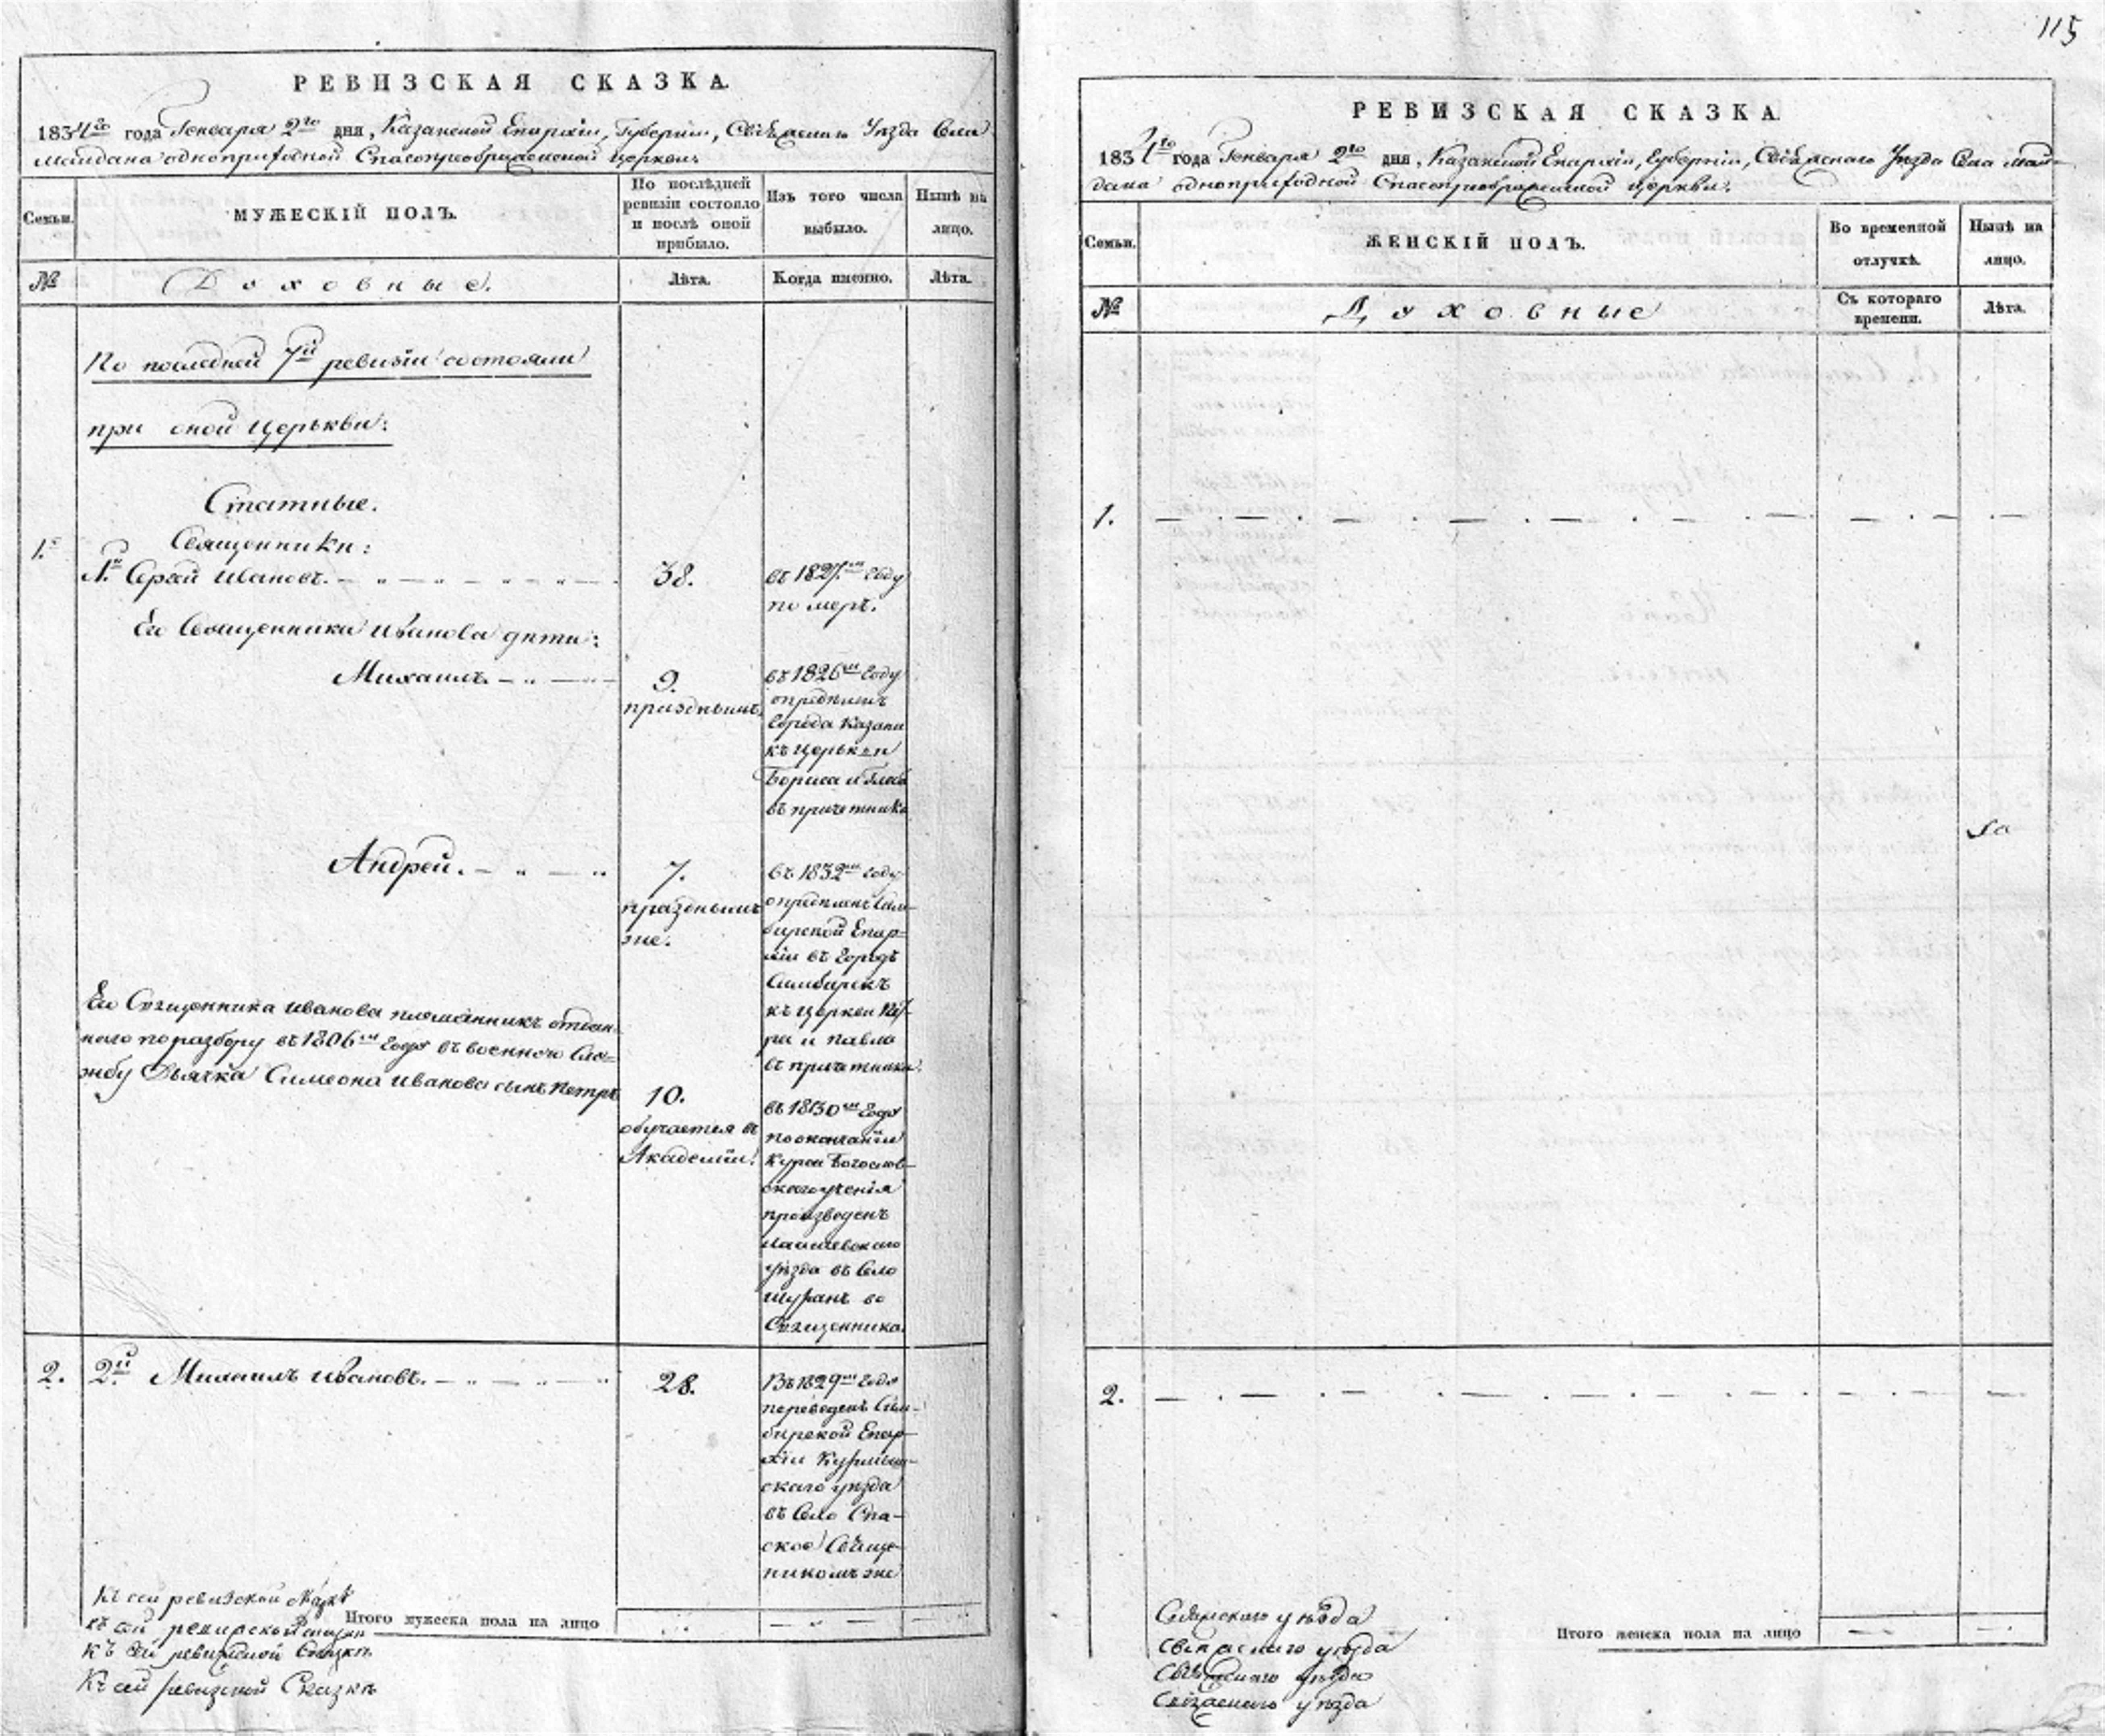 РЕВИЗСКАЯ СКАЗКА.
1834го года Генваря 2го дня, Казанской Епархіи, Губерніи, Свіяжскаго Уѣзда Села
Майдана одноприходной Спасопреображенской церкви
Семьи.
МУЖЕСКІЙ ПОЛЪ.
По послѣдней
ревизіи состояло
и послѣ оной
прибыло.
Изъ того числа
выбыло.
Нынѣ на
лицо.
№
Духовные.
Лѣта.
Когда именно.
Лѣта.
По последней 7й ревизіи состояли
при оной Церькви:
Статные.
Священники:
1.
1й Сергей Ивановъ.
38.
въ 1827м году
померъ.
Ево Священника Иванова дети:
Михаилъ
9.
празднымъ.
въ 1826м году
определенъ
города Казани
къ Церькви
Бориса и Глеба
въ причетника
Андрей.
7.
празднымъ
же.
въ 1832м году
определенъ Сим-
бирской Епар-
хіи въ городъ
Симбирскъ
къ Церкви Пет-
ра и Павла
въ причетники
Ево Священника Иванова племянникъ отдан-
наго по разбору въ 1806м году въ военную Слу-
жбу Дьячка Симеона Иванова сынъ Петръ
10.
обучается въ
Академіи.
въ 1830м году
по окончаніи
Курса Богослов-
скаго ученія
произведенъ
Лаишевскаго
уѣзда въ Село
Шуранъ во
Священника.
2.
2й Михаилъ Ивановъ.
28.
Въ 1829м годе
переведенъ Сим-
бирской Епар-
хіи Курмыш-
скаго уѣзда
въ Село Спа-
ское Свяще-
никомъ же
Итого мужеска пола на лицо
Къ сей ревизской
къ сей ревизской
Къ сей ревизской Сказкѣ
Къ сей ревизской Сказкѣ
115
РЕВИЗСКАЯ СКАЗКА
1834го года Генваря 2го дня, Казанской Епархіи, Губерніи, Свіяжскаго Уѣзда Села Май-
дана одноприходной Спасопреображенской церкви.
Семьи.
ЖЕНСКІЙ ПОЛЪ.
Во временной
отлучкѣ.
Нынѣ на
лицо.
№
Духовные
Съ котораго
времени.
Лѣта.
1.
2.
Итого женска пола на лицо
Свіяжскаго уѣзда
Свіяжскаго уѣзда
Свіяжскаго уѣзда
Свіяжскаго уѣзда